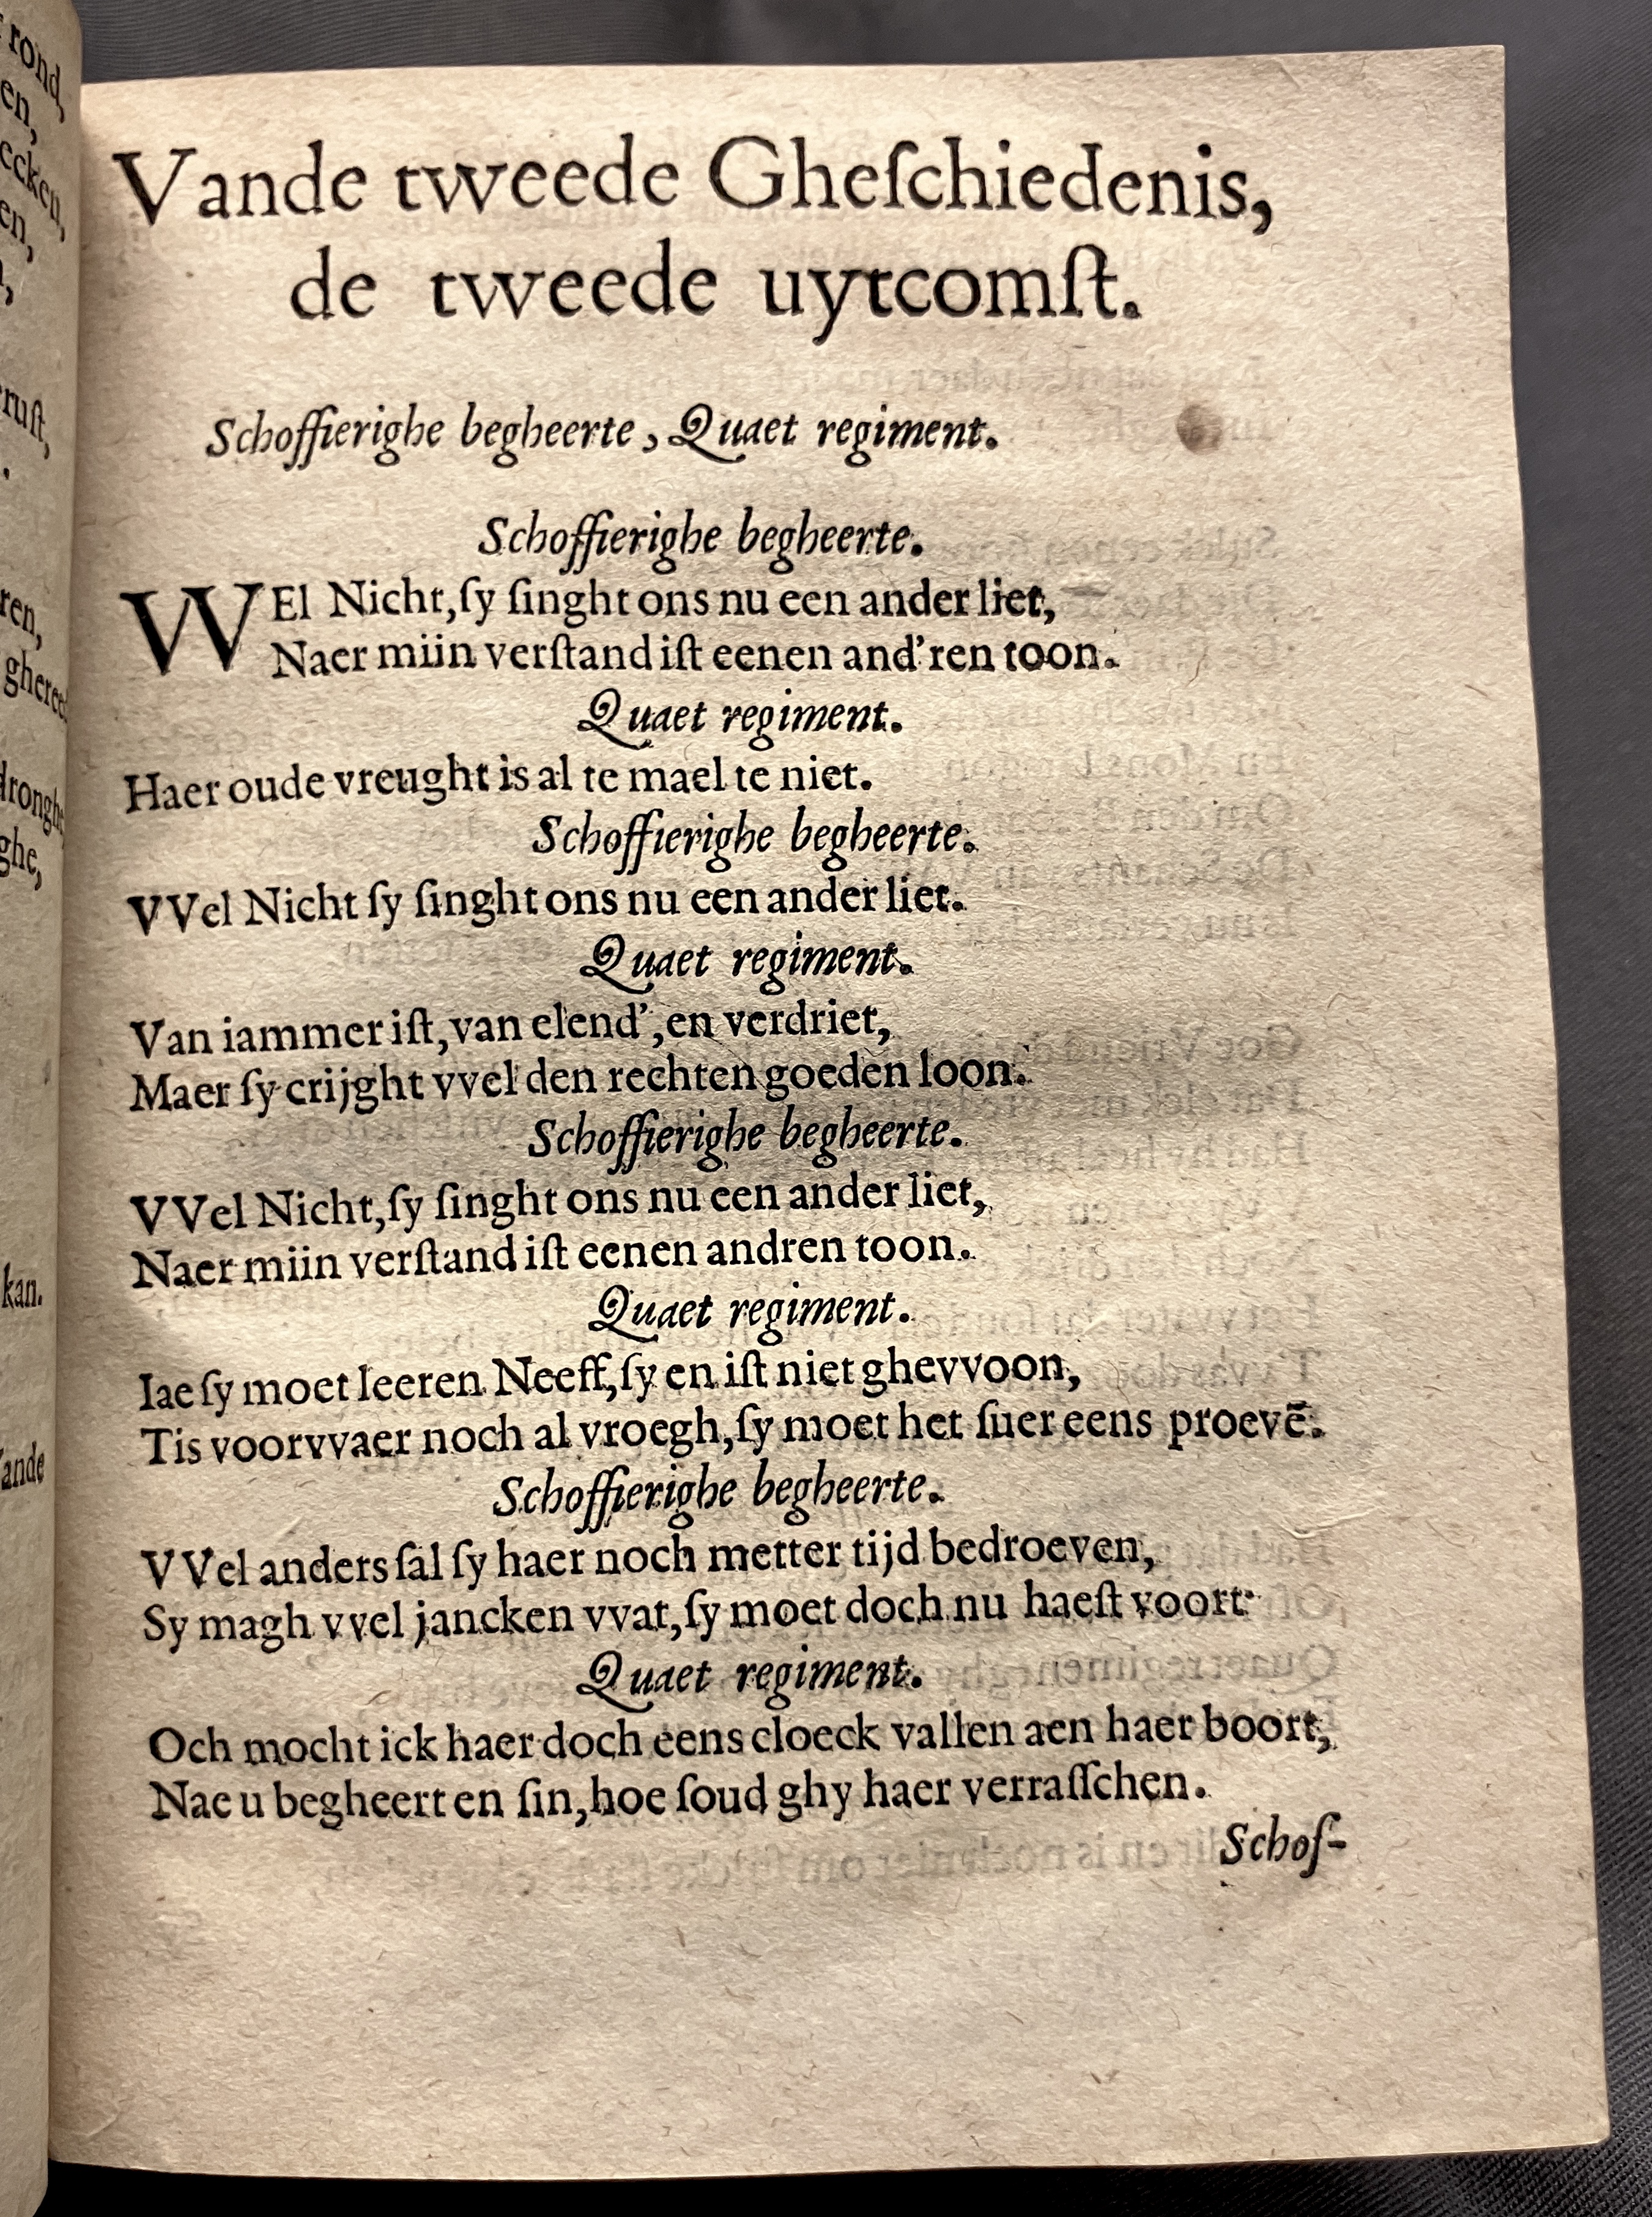 rond,
en,
ecken,
en,
ruſt,
ren,
gheree
drongh
ghe,
kan.
ande
Vande tweede Gheſchiedenis,
de tweede uytcomſt.
Schoffierighe begheerte, Quaet regiment.
Schoffierighe begheerte.
WEl Nicht,ſy ſinght ons nu een ander liet,
Naer miin verſtand iſt eenen and'ren toon.
Quaet regiment.
Haer oude vreught is al te mael te niet.
Schoffierighe begheerte.
VVel Nicht ſy ſinght ons nu een ander liet.
Quaet regiment.
Van iammer iſt,van elend',en verdriet,
Maer ſy crijght vvel den rechten goeden loon.
Schoffierighe begheerte.
VVel Nicht,ſy ſinght ons nu een ander liet,
Naer miin verſtand iſt eenen andren toon.
Quaet regiment.
Iae ſy moet leeren Neeff,ſy en iſt niet ghevvoon,
Tis voorvvaer noch al vroegh,ſy moet het ſuer eens proevē.
Schoffierighe begheerte.
VVel anders ſal ſy haer noch metter tijd bedroeven,
Sy magh vvel jancken vvat,ſy moet doch nu haeſt voort.
Quaet regiment.
Och mocht ick haer doch eens cloeck vallen aen haer boort,
Nae u begheert en ſin,hoe ſoud ghy haer verraſſchen.
Schof-